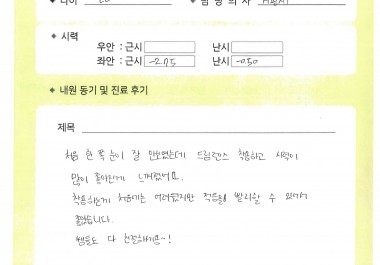 ◆ 시력
우안 : 근시 난시
좌안 : 근시 -2.75 난시 -0.50
◆ 내원 동기 및 진료 후기
제목
처음 한 쪽 눈이 잘 안보였는데 드림렌즈 착용하고 시력이
많이 좋아진게 느껴졌어요.
착용하는게 처음에는 어려웠지만 적응을 빨리할 수 있어서
좋았습니다.
쌤들도 다 친절하세요~!